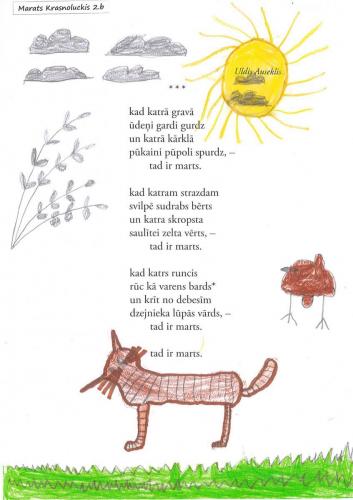 Marats Krasnoluckis 2.b
Uldis Auseklis
* * *
kad katrā gravā
ūdeņi gardi gurdz
un katrā kārklā
pūkaini pūpoli spurdz, –
tad ir marts.
kad katram strazdam
svilpē sudrabs bērts
un katra skropsta
saulītei zelta vērts, –
tad ir marts.
kad katrs runcis
rūc kā varens bards*
un krīt no debesīm
dzejnieka lūpās vārds, –
tad ir marts.
tad ir marts.